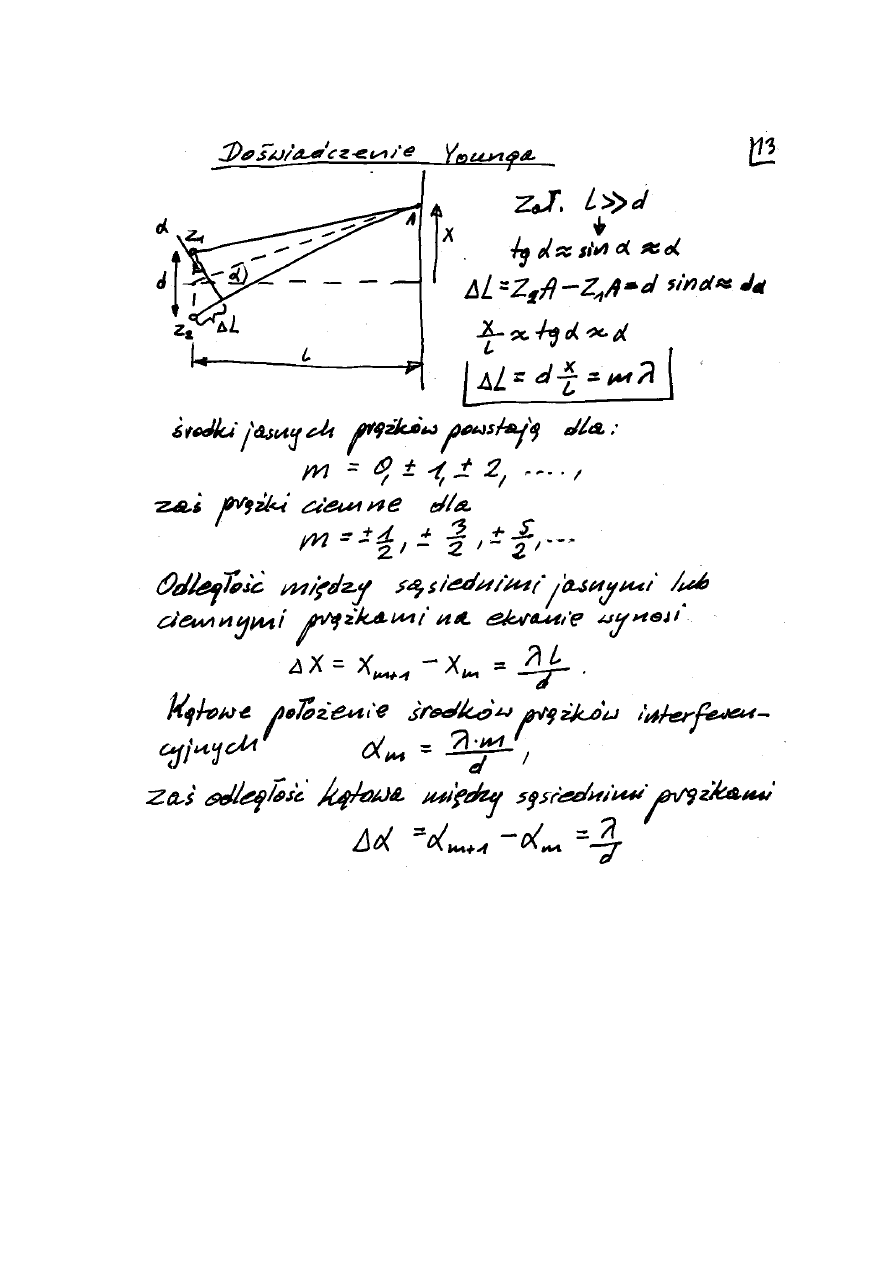 Doświadczenie Younga
13
Zał. L≫d
tg α ≈ sin α ≈ α
ΔL = Z₂A − Z₁A = d sin α ≈ dα
x/L ≈ tg α ≈ α
ΔL = d x/L = mλ
α
Z₁
d
α
Z₂
ΔL
L
A
X
środki jasnych prążków powstają dla:
m = 0, ± 1, ± 2, ....,
zaś prążki ciemne dla
m = ± 1/2, ± 3/2, ± 5/2, ...
Odległość między sąsiednimi jasnymi lub
ciemnymi prążkami na ekranie wynosi
ΔX = Xₘ₊₁ − Xₘ = λL/d .
Kątowe położenie środków prążków interferen-
cyjnych αₘ = λ·m/d ,
zaś odległość kątowa między sąsiednimi prążkami
Δα = αₘ₊₁ − αₘ = λ/d